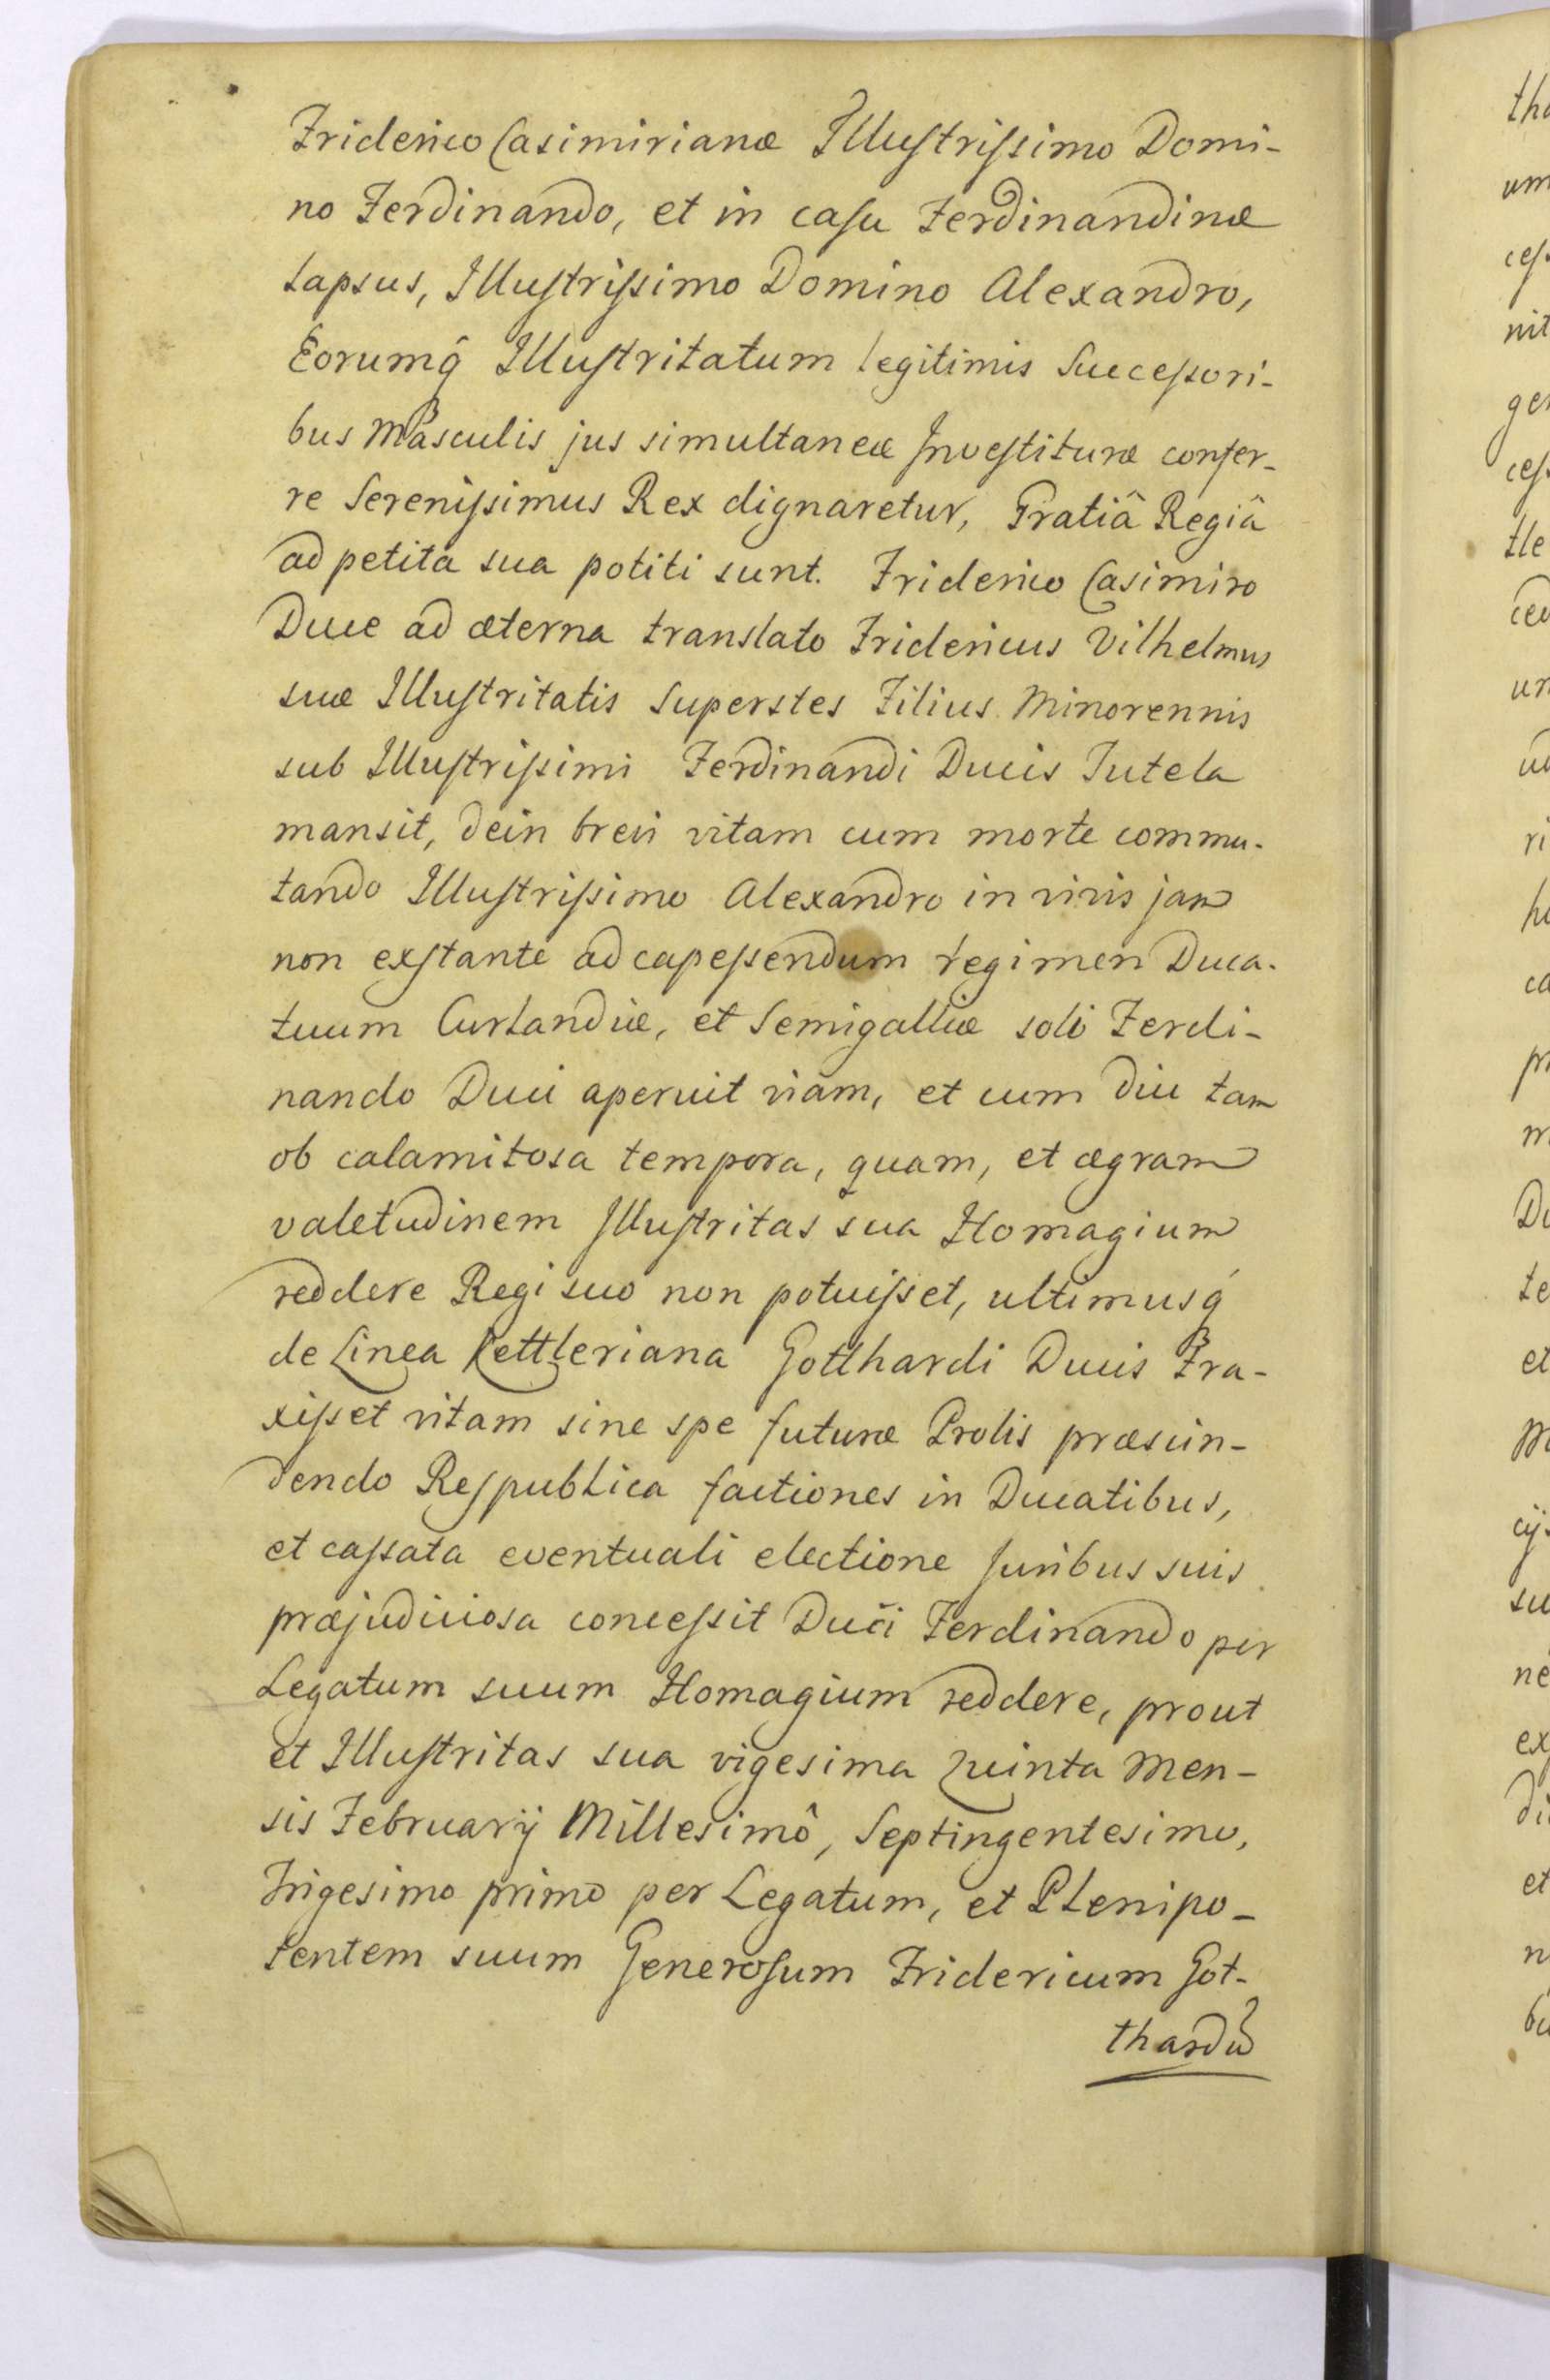 Friderico Casimirianæ Illustrissimo Domi-
no Ferdinando, et in casu Ferdinandinæ
Lapsus, Illustrissimo Domino Alexandro,
Eorumq̂ Illustritatum legitimis Successori-
bus Masculis jus simultaneæ Investituræ confer-
re Serenissimus Rex dignaretur, Gratiâ Regiâ
ad petita sua potiti sunt. Friderico Casimiro
Duce ad æterna translato Fridericus Vilhelmus
suæ Illustritatis Superstes Filius Minorennis
sub Illustrissimi Ferdinandi Ducis Tutela
mansit, dein brevi vitam cum morte commu-
tando Illustrissimo Alexandro in vivis jam
non exstante ad capessendum regimen Duca-
tuum Curlandiæ, et Semigalliæ soli Ferdi-
nando Duci aperuit viam, et cum diu tam
ob calamitosa tempora, quam, et ægram
valetudinem Illustritas sua Homagium
reddere Regi suo non potuisset, ultimusq́
de Linea Kettleriana Gotthardi Ducis Tra-
xisset vitam sine spe futuræ Prolis præscin-
dendo Respublica factiones in Ducatibus,
et cassata eventuali electione Juribus suis
præjudiciosa concessit Duci Ferdinando per
Legatum suum Homagium reddere, prout
et Illustritas sua vigesima Quinta Men-
sis Februarij Millesimô, Septingentesimo,
Trigesimo primo per Legatum, et Plenipo-
tentem suum Generosum Fridericum Got-
thardũ